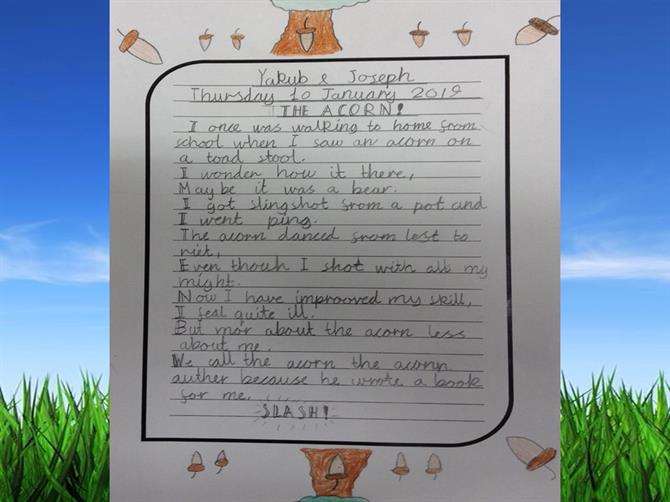 Yakub & Joseph
Thursday 10 January 2019
THE ACORN!
I once was walking to home from
school when I saw an acorn on
a toad stool.
I wonder how it there,
Maybe it was a bear.
I got slingshot from a pot and
I went ping.
The acorn danced from lest to
riet,
Even though I shot with all my
might.
Now I have improoved my skill,
I feal quite ill.
But mor about the acorn less
about me.
We call the acorn the acorn
auther because he wrote a book
for me.
SLASH!